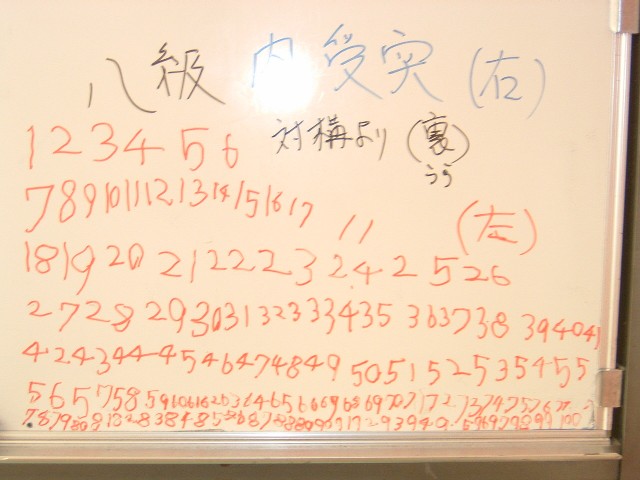 八級 内受突 (右)
1 2 3 4 5 6 対構より (裏)
うら
7 8 9 10 11 12 13 14 15 16 17 〃 (左)
18 19 20 21 22 23 24 25 26
27 28 29 30 31 32 33 34 35 36 37 38 39 40 41
42 43 44 45 46 47 48 49 50 51 52 53 54 55
56 57 58 59 60 61 62 63 64 65 66 69 68 69 70 71 72 73 74 75 76 77
78 79 80 81 82 83 84 85 86 87 88 89 90 91 92 93 94 95 96 97 98 99 100